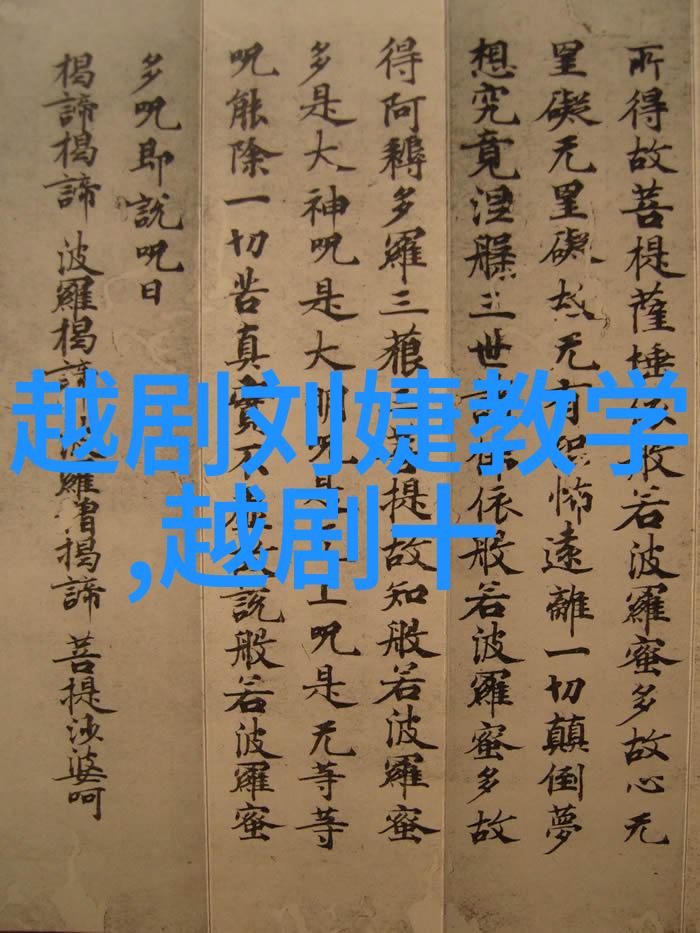 所得故菩提薩埵依般若波羅蜜多故心无
罣礙无罣礙故无有恐怖遠離一切顛倒夢
想究竟涅槃三世諸佛依般若波羅蜜多故
得阿耨多羅三藐三菩提故知般若波羅蜜
多是大神呪是大明呪是无上呪是无等等
呪能除一切苦真實不虛故說般若波羅蜜
多呪即說呪曰
揭諦揭諦 波羅揭諦 波羅僧揭諦 菩提沙婆呵
越剧刘婕教学
,越剧十